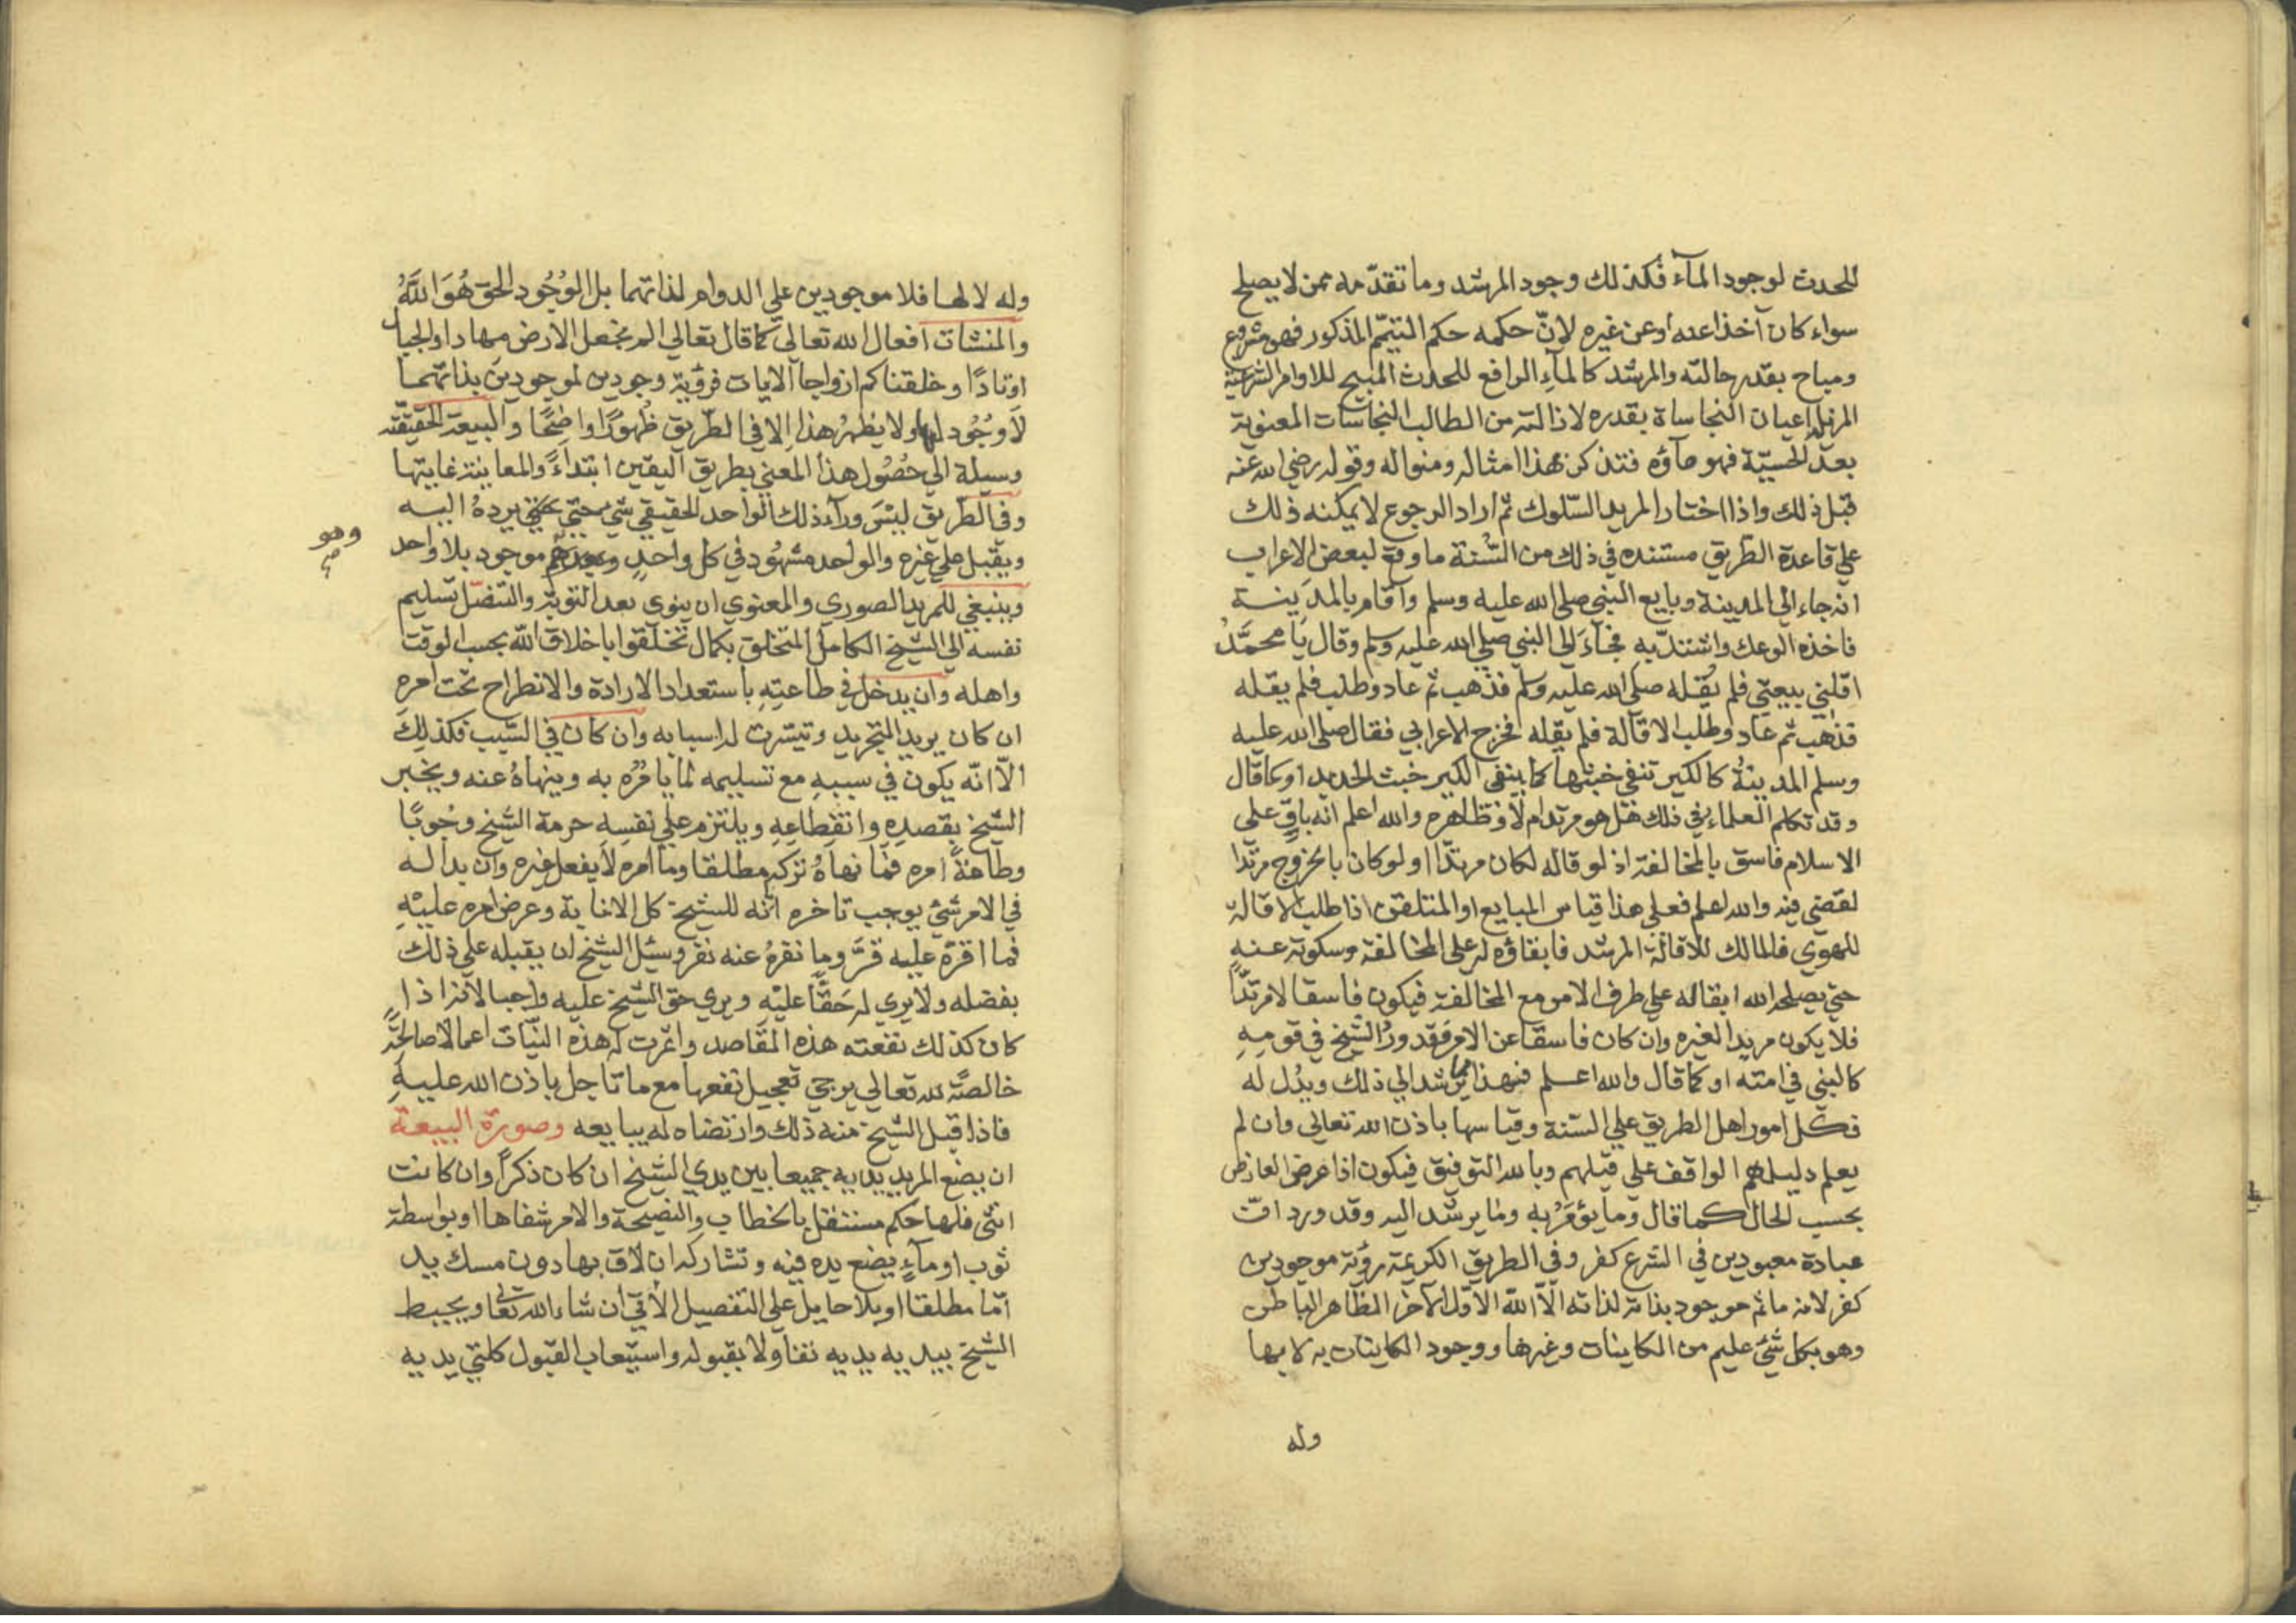 للحدث لوجود المآء فكذلك وجود المرشد وما تقدّمه ممن لا يصلح
سواء كان آخذا عنه او عن غيره لانّ حكمه حكم المتيمّم المذكور فهو مشروع
ومباح بقدر حالته والمرشد كالمآءِ الرافع للحدث المبيح للاوامر الشرعيّة
المزيل اعيان النجاساة بقدره لازالته من الطالب النجاسات المعنوية
بعد الحسيّة فهو مآؤه فتذكر بهذا امثاله ومنواله وقوله رضي الله عنه
قبل ذلك واذا اختار المريد السّلوك ثم اراد الرجوع لا يمكنه ذلك
علي قاعدة الطّريق مستنده في ذلك من السُّنة ما وقع لبعض الاعراب
انه جاء الي المدينة وبايع النبي صلى الله عليه وسلم وآقام بالمدَينة
فاخذه الوعك واشتدّ به فجآءَ الي النبي صلي الله عليه وسلم وقال يَا محمَّدُ
اقلني بيعتي فلم يُقله صلي الله عليه وسلم فذهب ثم عاد وطلب فلم يقله
فذهب ثم عاد وطلب الاقالة فلم يقله فخرج الاعرابي فقال صلي الله عليه
وسلم المدينةُ كالكير تنفي خبثها كما ينفي الكير خبث الحديد او كما قال
وقد تكلم العلماء في ذلك هل هو مرتد ام لا وظاهره والله اعلم انه باقٍ على
الاسلام فاسق بالمخالفة اذ لو قاله لكان مرتدّا اولو كان بالخروج مرتدّا
لقضي فيه والله اعلم فعلي هذا قياس المبايع او المتلقن اذا طلب الاقالة
للهوي فالمالك للاقالة المرشد فابقاؤه له على المخالفة وسكوته عنهِ
حتي يصلحه الله ابقاله علي طرف الامر مع المخالفة فيكون فاسقا لا مرتدّاً
فلا يكون مريد الغيره وان كان فاسقا عن الامر فقد ورد الشّيخ في قومهِ
كالنبي في امته او كما قال والله اعلم فهذا مما يرشد الي ذلك ويدُل له
فكل امور اهل الطريق علي السّنة وقياسها باذن الله تعالى وان لم
يعلم دليلهم الواقف علي قيلهم وبالله التوفيق فيكون اذا عرض العارض
بحسب الحال كما قال وما يؤمَرُ به وما يرشد اليه وقد ورد انّ
عبادة معبودين في الشرع كفر وفي الطريق الكريمة رؤية موجودين
كفر لانه ما ثم موجود بذاته لذاته الاّ الله الاوّل الآخر الظاهر الباطن
وهو بكل شيئ عليم من الكاينات وغيرها ووجود الكاينات به لا بها
وله
وله لا لها فلا موجودين علي الدوام لذاتهما بل الوُجُود الحق هُوَ اللَّهُ
والمنشات افعال الله تعالى كما قال تعالي الم نجعل الارض مهادا والجبال
اوتادًا وخلقناكم ازواجا الايات فرؤية وجودين لموجودين بذاتهما
لاَ وُجُود لها ولا يظهرُ هذا اِلا في الطّريق ظُهورًا واضِحًا والبيعة الحقيقّة
وسيلة الي حُصُول هذا المعني بطريق اليقين ابتداءً والمعاينة غايتها
وفي الطّريق ليْسَ ورآء ذلك الواحد الحقيقي شي حتي يردهُ اليه
ويقبل علي غيره والواحد مشهُود في كل واحدٍ وبعدهم موجود بلا واحد
وهو
وينبغي للمريد الصوري والمعنوي ان ينوي بعد التوبة والتنصّل تسليم
نفسه الي الشيخ الكامل المتخلق بكمال تخلّقوا باخلاق اللّه بحسب الوقت
واهله وان يدخل في طاعتِهِ باستعداد الارادة والانطراح تحت امره
ان كان يريد التّجريد وتيسّرت له اسبابه وان كان في السّبب فكذلِكَ
الاّ انّه يكون في سببهِ مع تسليمه لما يامُرُه به وينهاهُ عنه ويخبر
الشّيخ بقصدِهِ وانقِطاعِهِ ويلتزم علي نفسِهِ حرمة الشّيخ وجُوبًا
وطاعةً امره فما نهاهُ تركه مطلقا وما امره لا يفعل غيره وان بداله
في الامر شئ يوجب تاخره انه للشيخ كل الانابة وعرض امره عليْهِ
فما اقرّهُ عليه قرَّ وما نفرهُ عنه نفر وسئل الشيخ ان يقبله علي ذلك
بفضله ولا يري له حَقًّا عليْهِ ويري حق الشّيخ عليه واجبا لانه اذا
كان كذلك نفعته هذه المقاصد واثمرت له هذه النيّات اعمالا صالحَةً
خالصًة لله تعالي يرجي تعجيل نفعها مع ما تاجل باذن الله عليهِ
فاذا قبل الشّيخ منه ذلك وارتضاه له يبايعه وصورة البيعة
ان يضع المريد يديه جميعا بين يدي الشيخ ان كان ذكراً وان كانت
انثى فلها حكم مستقل بالخطاب والنصيحة والامر شفاها او بواسطة
ثوب او مآءٍ يضع يده فيه وتشاركه ان لاق بها دون مسك يد
امّا مطلقا او بلا حايل على التفصيل الآتي ان شاء الله تعالي ويحيط
الشّيخ بيديه يديه تفاؤلا بقبوله واستيعاب القبول كلتي يديه